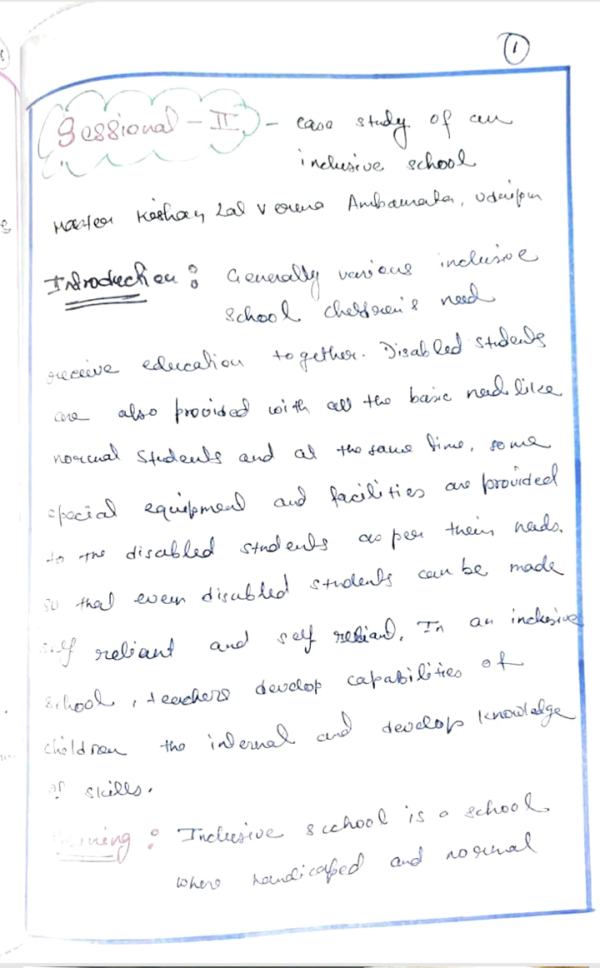 1
Sessional - II - case study of an
inclusive school
Master Keshav Lal Verma Ambamata, Udaipur
Introduction : Generally various inclusive
school children's need
receive education together. Disabled students
are also provided with all the basic need like
normal students and at the same time, some
special equipment and facilities are provided
to the disabled students as per their needs.
so that even disabled students can be made
self reliant and self reliant. In an inclusive
school, teachers develop capabilities of
children the internal and develop knowledge
of skills.
Meaning : Inclusive school is a school
where handicaped and normal